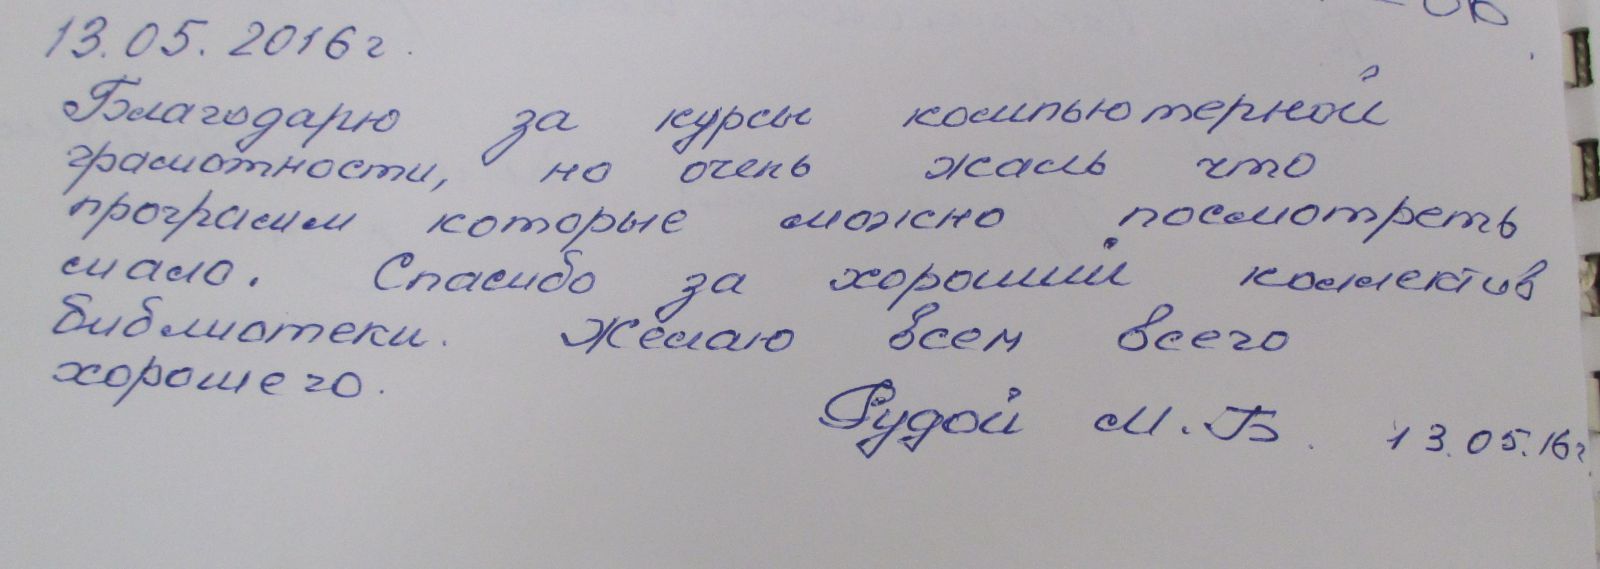 13.05.2016г.
Благодарю за курсы компьютерной
грамотности, но очень жаль что
программ которые можно посмотреть
мало. Спасибо за хороший коллектив
библиотеки. Желаю всем всего
хорошего.
Рудой М.Б. 13.05.16г